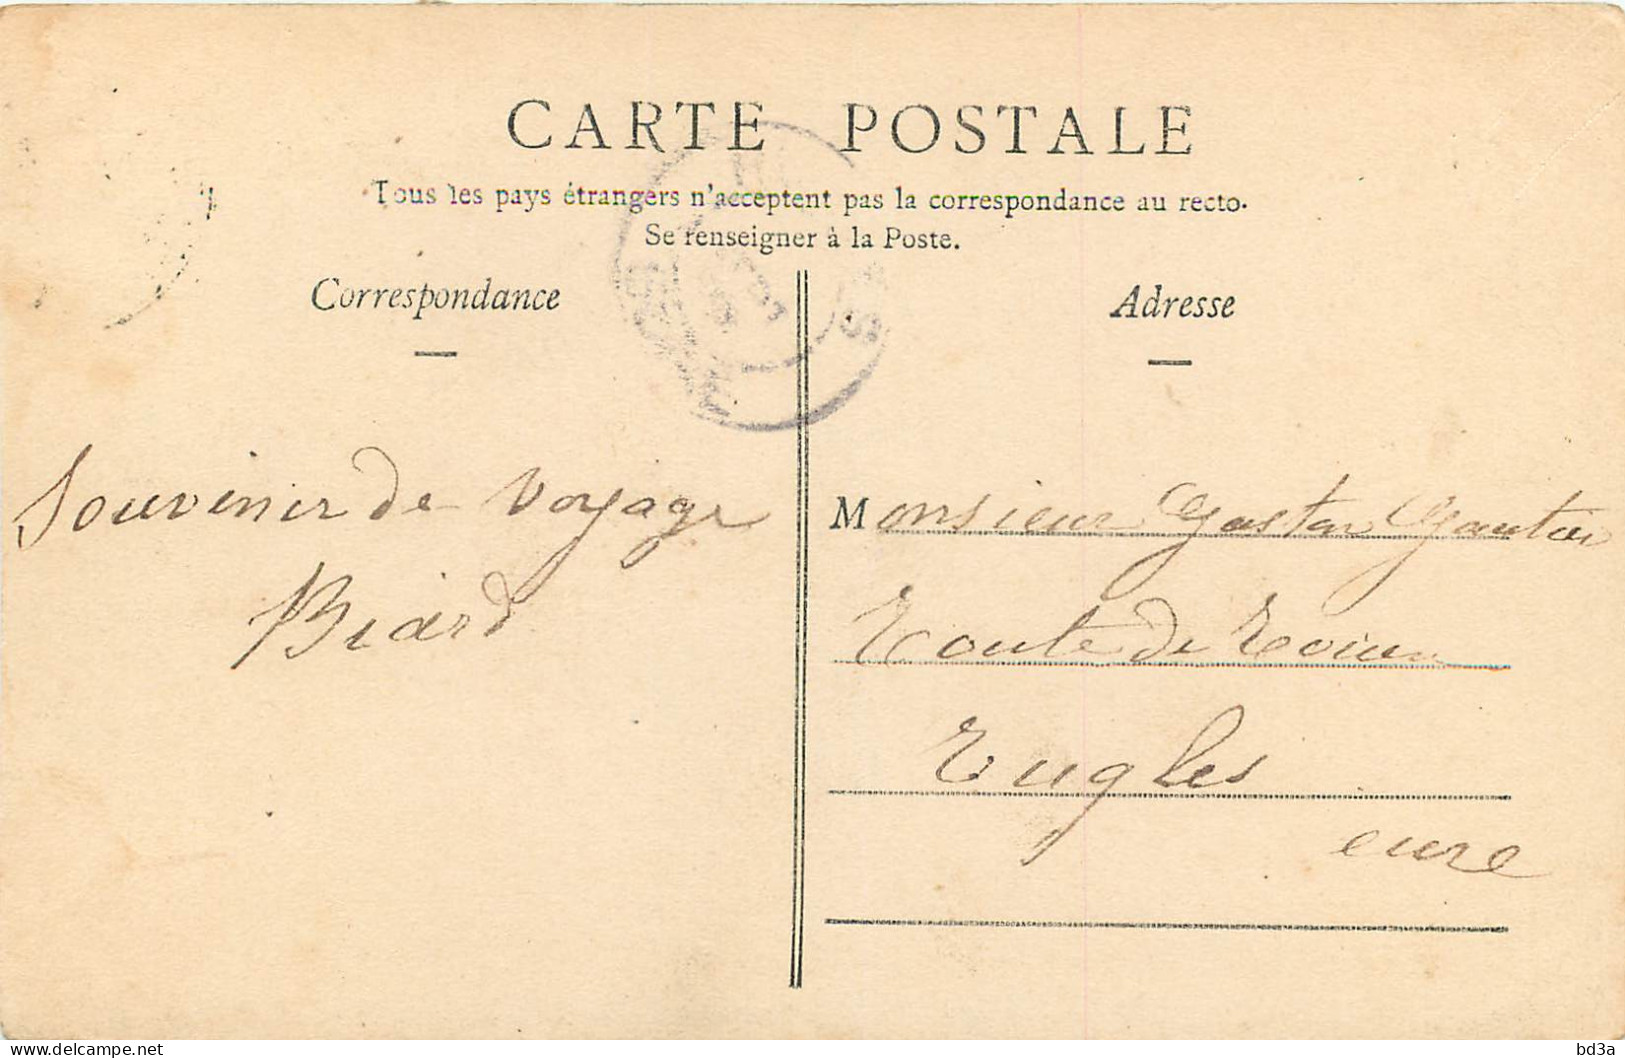 CARTE POSTALE
Tous les pays étrangers n'acceptent pas la correspondance au recto.
Se renseigner à la Poste.
Correspondance
Souvenir de voyage
Biard
Adresse
Monsieur Gaston Gautier
Route de
Rugles
eure
delcampe.net
bd3a